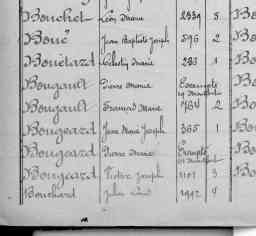 Bouchet Léon Marie 2339 5
Bouc Jean Baptiste Joseph 596 2
Bouëtard Célestin Marie 283 1
Bougault Pierre Marie Exempté
Bougault François Marie 784 2
Bougeard Jean Marie Joseph 365 1
Bougeard Pierre Marie Exempté
Bougeard Victor Joseph 1101 3
Bouchard Jules 1992 4